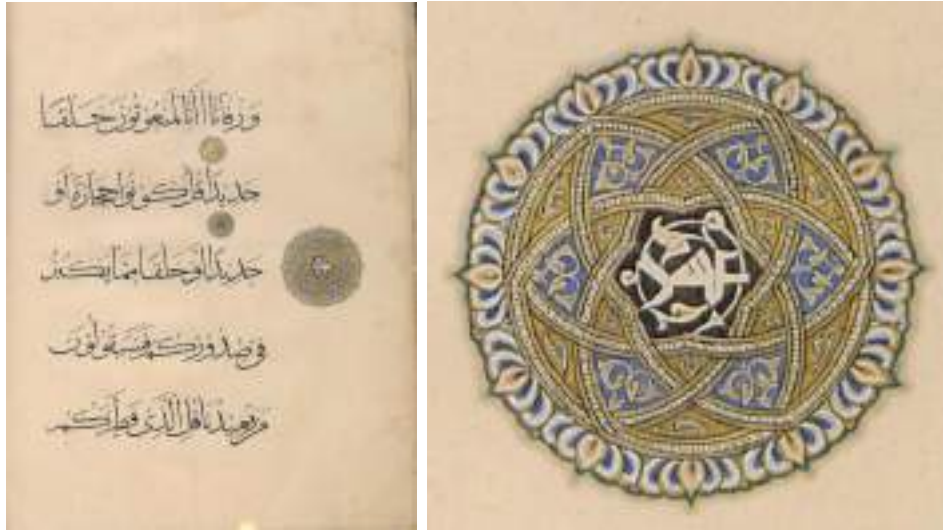 ورفاتا أانا لمبعوثون خلقا
جديدا قل كونوا حجارة او
حديدا او خلقا مما يكبر
في صدوركم فسيقولون
من يعيدنا قل الذي فطركم